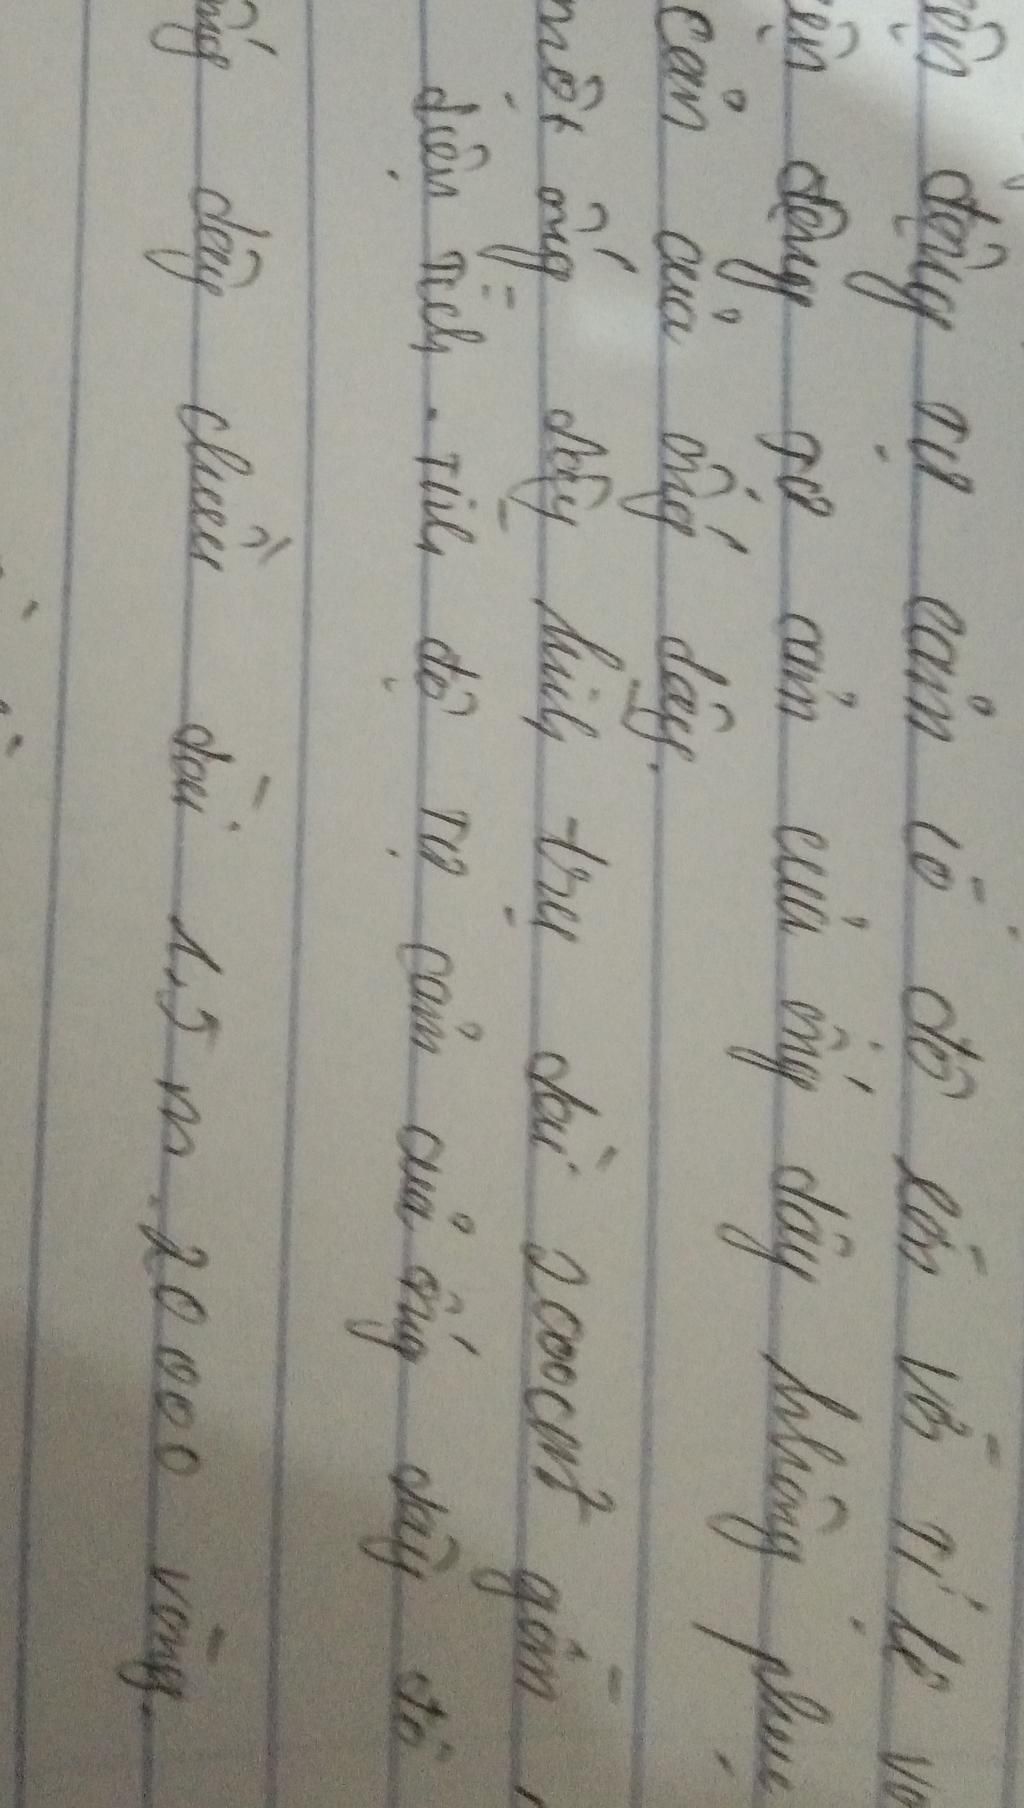 động tự cảm có độ lớn với tỉ lệ
động tự cảm của ống dây không phụ
cảm của ống dây.
một ống dây hình trụ dài gồm
diện tích. Tính độ tự cảm của ống dây đó
ống dây chiều dài 1,5 m. 20000 vòng.